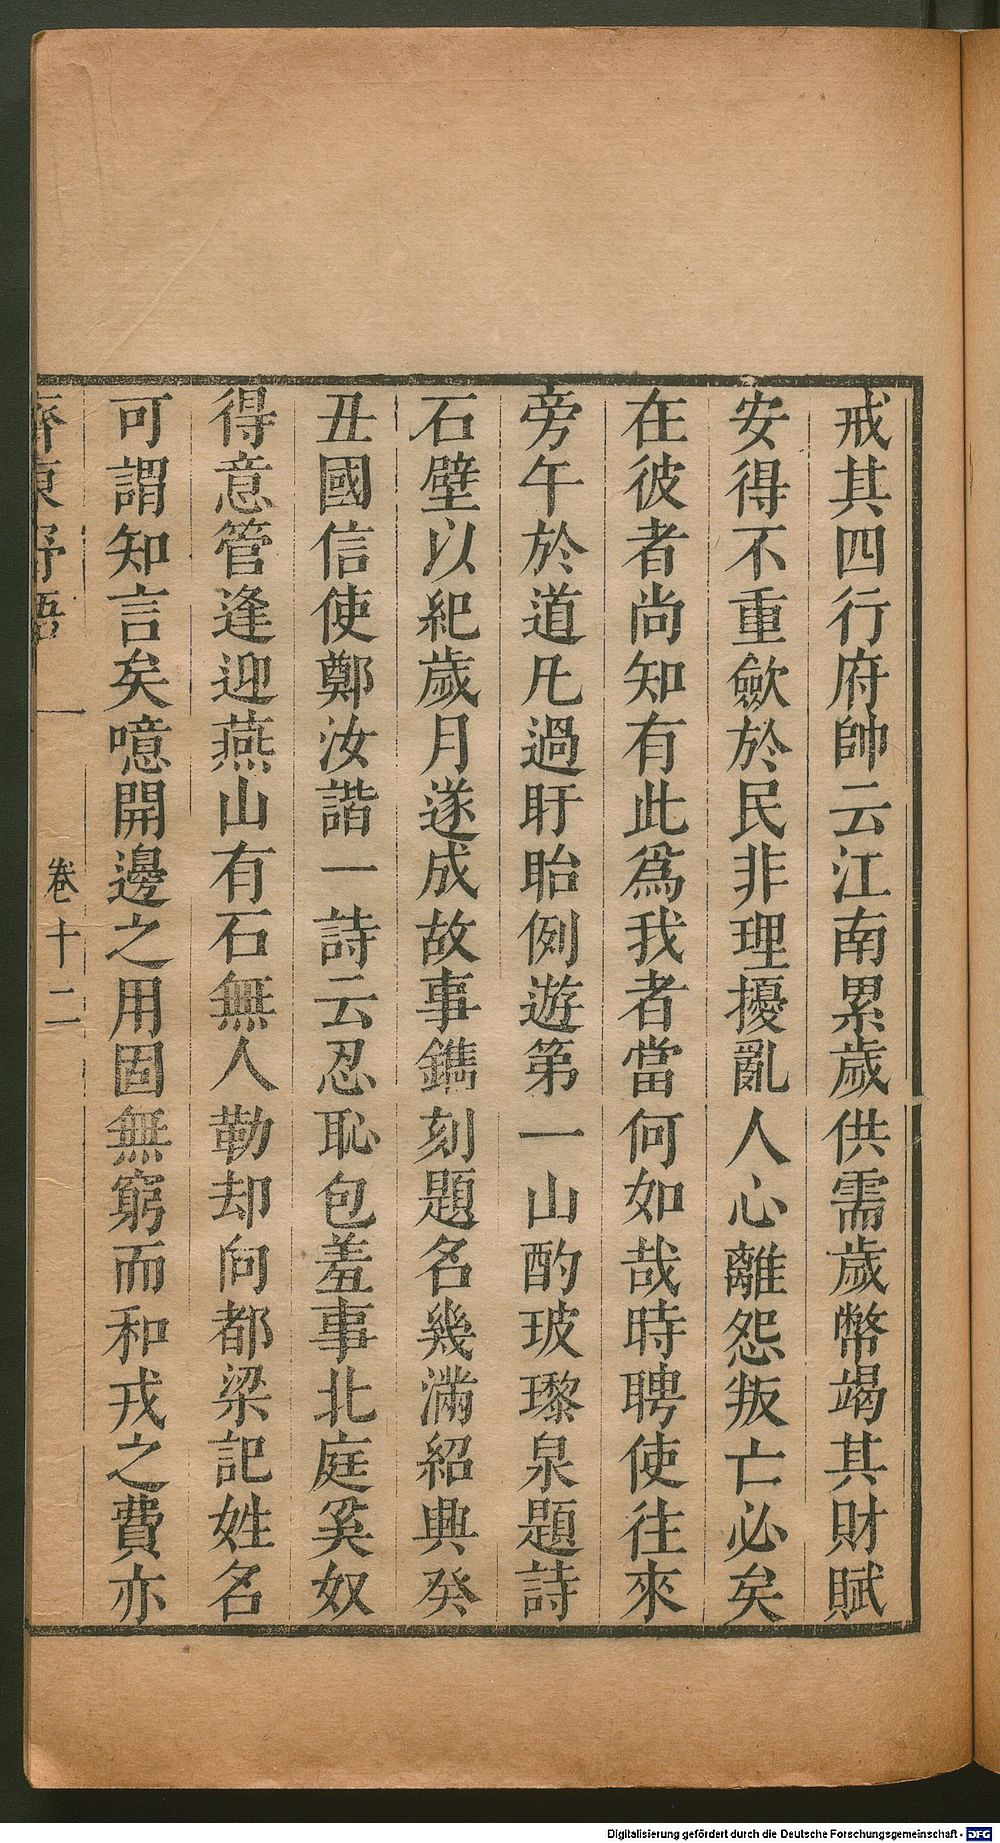 戒其四行府帥云江南累歲供需歲幣竭其財賦
安得不重歛於民非理擾亂人心離怨叛亡必矣
在彼者尚知有此爲我者當何如哉時聘使往來
旁午於道凡過盱眙例遊第一山酌玻瓈泉題詩
石壁以紀歲月遂成故事鐫刻題名幾滿紹興癸
丑國信使鄭汝諧一詩云忍恥包羞事北庭奚奴
得意管逢迎燕山有石無人勒却向都梁記姓名
可謂知言矣噫開邊之用固無窮而和戎之費亦
齊東野語 卷十二
Digitalisierung gefördert durch die Deutsche Forschungsgemeinschaft - DFG